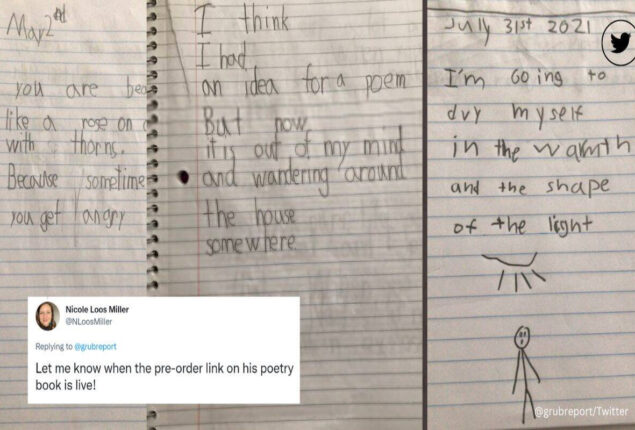 May 2nd
you are bea
like a rose on a
with thorns.
Because sometime
you get angry
I think
I had
an idea for a poem
But now
it is out of my mind
and wandering around
the house
somewhere
July 31st 2021
I'm Going to
dry myself
in the warmth
and the shape
of the light
Nicole Loos Miller
@NLoosMiller
Replying to @grubreport
Let me know when the pre-order link on his poetry
book is live!
@grubreport/Twitter